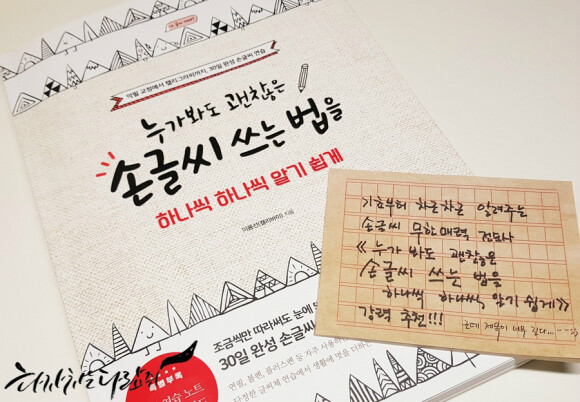 악필 교정에서 캘리그라피까지, 30일 완성 손글씨 연습
누가봐도 괜찮은
손글씨 쓰는 법을
하나씩 하나씩 알기 쉽게
이용선(캘리바이) 지음
조금씩만 따라써도 눈에 띄
30일 완성 손글씨
연필, 볼펜, 플러스펜 등 자주 사용하
단정한 글씨체 연습에서 생활에 멋을 더하는
특별부록
연습 노트
기초부터 차근차근 알려주는
손글씨 무한매력 전도사
《누가 봐도 괜찮은
손글씨 쓰는 법을
하나씩 하나씩 알기 쉽게》
강력 추천!!!
근데 제목이 너무 길다...